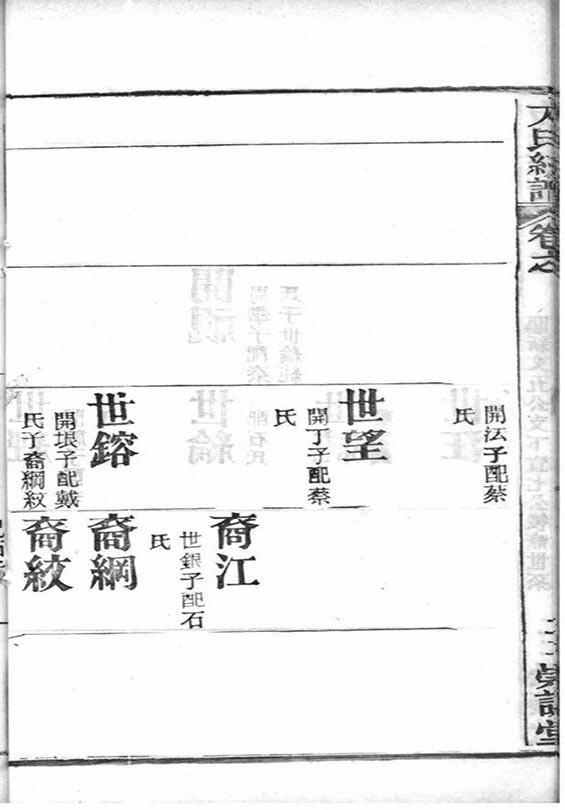 卷之
開法子配蔡
氏
世望
開丁子配蔡
氏
世鎔
開埌子配戴
氏子裔綱紋
裔江
世銀子配石
氏
裔綱
裔紋